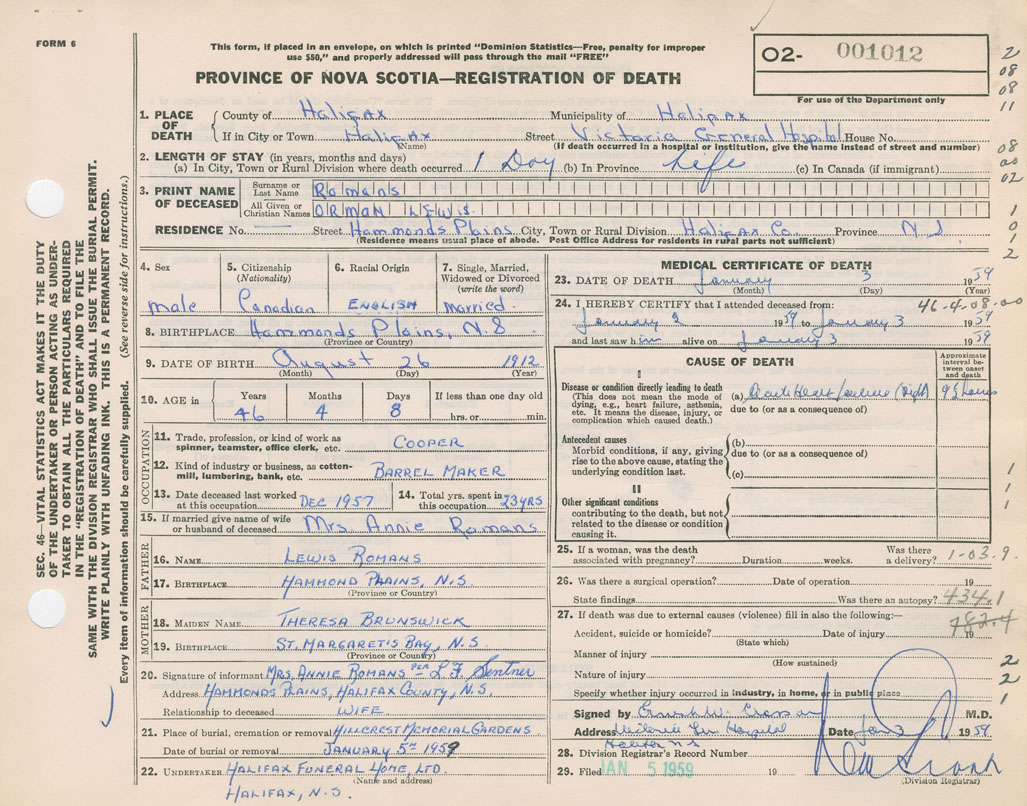 FORM 6
This form, if placed in an envelope, on which is printed "Dominion Statistics—Free, penalty for improper
use $50," and properly addressed will pass through the mail "FREE"
PROVINCE OF NOVA SCOTIA—REGISTRATION OF DEATH
O2- 001012
For use of the Department only
2
08
08
11
08
00
02
1
0
1
2
SEC. 46—VITAL STATISTICS ACT MAKES IT THE DUTY
OF THE UNDERTAKER OR PERSON ACTING AS UNDER-
TAKER TO OBTAIN ALL THE PARTICULARS REQUIRED
IN THE "REGISTRATION OF DEATH" AND TO FILE THE
SAME WITH THE DIVISION REGISTRAR WHO SHALL ISSUE THE BURIAL PERMIT.
WRITE PLAINLY WITH UNFADING INK. THIS IS A PERMANENT RECORD.
Every item of information should be carefully supplied. (See reverse side for instructions.)
1. PLACE OF DEATH
County of Halifax Municipality of Halifax
If in City or Town Halifax Street Victoria General Hospital House No.
(Name) (If death occurred in a hospital or institution, give the name instead of street and number)
2. LENGTH OF STAY (in years, months and days)
(a) In City, Town or Rural Division where death occurred 1 Day (b) In Province Life (c) In Canada (if immigrant)
3. PRINT NAME OF DECEASED
Surname or Last Name Romans
All Given or Christian Names ORMAN LEWIS
RESIDENCE No. — Street Hammonds Plains City, Town or Rural Division Halifax Co. Province N.S.
(Residence means usual place of abode. Post Office Address for residents in rural parts not sufficient)
4. Sex male
5. Citizenship (Nationality) Canadian
6. Racial Origin ENGLISH
7. Single, Married, Widowed or Divorced (write the word) Married.
8. BIRTHPLACE Hammonds Plains, N.S.
(Province or Country)
9. DATE OF BIRTH August 26 1912
(Month) (Day) (Year)
10. AGE in Years Months Days If less than one day old
46 4 8 hrs. or min.
OCCUPATION
11. Trade, profession, or kind of work as spinner, teamster, office clerk, etc. COOPER
12. Kind of industry or business, as cotton-mill, lumbering, bank, etc. BARREL MAKER
13. Date deceased last worked at this occupation DEC 1957
14. Total yrs. spent in this occupation 23 YRS
15. If married give name of wife or husband of deceased Mrs Annie Romans
FATHER
16. NAME LEWIS ROMANS
17. BIRTHPLACE HAMMOND PLAINS, N.S.
(Province or Country)
MOTHER
18. MAIDEN NAME THERESA BRUNSWICK
19. BIRTHPLACE ST. MARGARETS BAY, N.S.
(Province or Country)
20. Signature of informant MRS. ANNIE ROMANS PER L F Sentner
Address HAMMONDS PLAINS, HALIFAX COUNTY, N.S.
Relationship to deceased WIFE
21. Place of burial, cremation or removal HILLCREST MEMORIAL GARDENS
Date of burial or removal JANUARY 5TH 1959
22. UNDERTAKER HALIFAX FUNERAL HOME, LTD.
(Name and address)
HALIFAX, N.S.
MEDICAL CERTIFICATE OF DEATH
23. DATE OF DEATH January 3 1959
(Month) (Day) (Year)
24. I HEREBY CERTIFY that I attended deceased from: 46-4-08-00
January 2 1959 to January 3 1959
and last saw him alive on January 3 1959
CAUSE OF DEATH
Approximate interval between onset and death
I
Disease or condition directly leading to death
(This does not mean the mode of dying, e.g., heart failure, asthenia, etc. It means the disease, injury, or complication which caused death.)
(a) Acute Heart Failure (Right) 9½ hours
due to (or as a consequence of)
Antecedent causes
Morbid conditions, if any, giving rise to the above cause, stating the underlying condition last.
(b)
due to (or as a consequence of)
(c)
II
Other significant conditions
contributing to the death, but not related to the disease or condition causing it.
1
1
1
25. If a woman, was the death associated with pregnancy? Duration weeks. Was there a delivery? 1-03.9.
26. Was there a surgical operation? Date of operation 19
State findings Was there an autopsy? 434.1
27. If death was due to external causes (violence) fill in also the following:— 782.4
Accident, suicide or homicide? Date of injury 19
(State which)
Manner of injury
(How sustained)
Nature of injury
Specify whether injury occurred in industry, in home, or in public place
2
2
1
Signed by M.D.
Address Victoria Gen Hospital Date Jan 3 1959.
Halifax N.S
28. Division Registrar's Record Number
29. Filed JAN 5 1959 19
(Division Registrar)